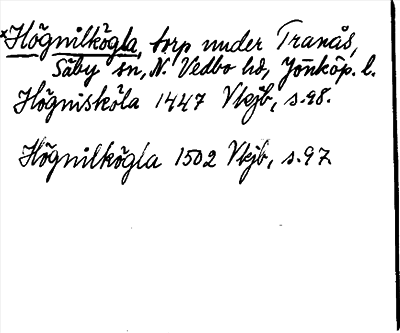 *Högnilkögla, torp under Tranås,
Säby sn, N. Vedbo hd, Jönköp. l.
Högnisköla 1447 Vkjb, s.98.
Högnilkögla 1502 Vkjb, s.97